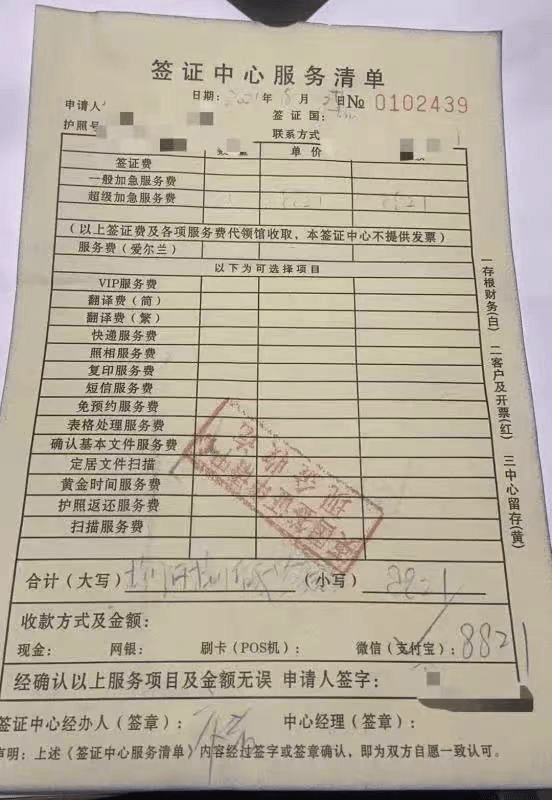 签证中心服务清单
日期：2021年8月 日№ 0102439
申请人 签证国：
护照号 联系方式
单价
签证费
一般加急服务费
超级加急服务费 8821 8821
（以上签证费及各项服务费代领馆收取，本签证中心不提供发票）
服务费（爱尔兰）
以下为可选择项目
VIP服务费
翻译费（简）
翻译费（繁）
快递服务费
照相服务费
复印服务费
短信服务费
免预约服务费
表格处理服务费
确认基本文件服务费
定居文件扫描
黄金时间服务费
护照返还服务费
扫描服务费
合计（大写） （小写） 8821
收款方式及金额：
现金： 网银： 刷卡（POS机）： 微信（支付宝）：8821
经确认以上服务项目及金额无误 申请人签字：
签证中心经办人（签章）： 中心经理（签章）：
声明：上述《签证中心服务清单》内容经过签字或签章确认，即为双方自愿一致认可。
一存根财务(白) 二客户及开票(红) 三中心留存(黄)
现金收讫